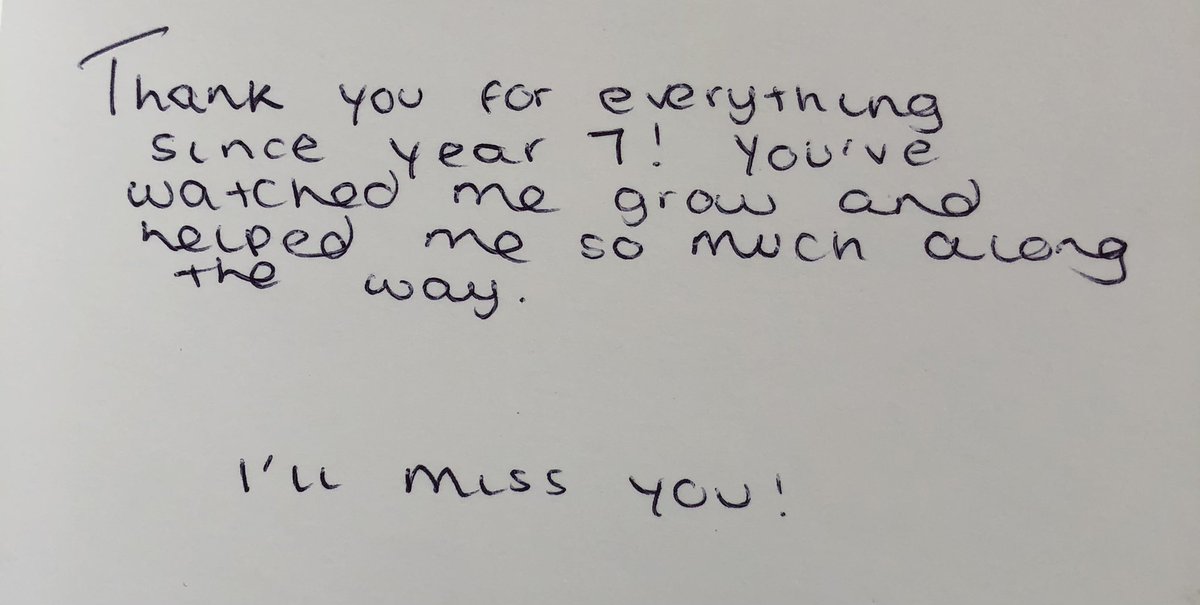 Thank you for everything
since year 7! You've
watched me grow and
helped me so much along
the way.
I'll miss you!